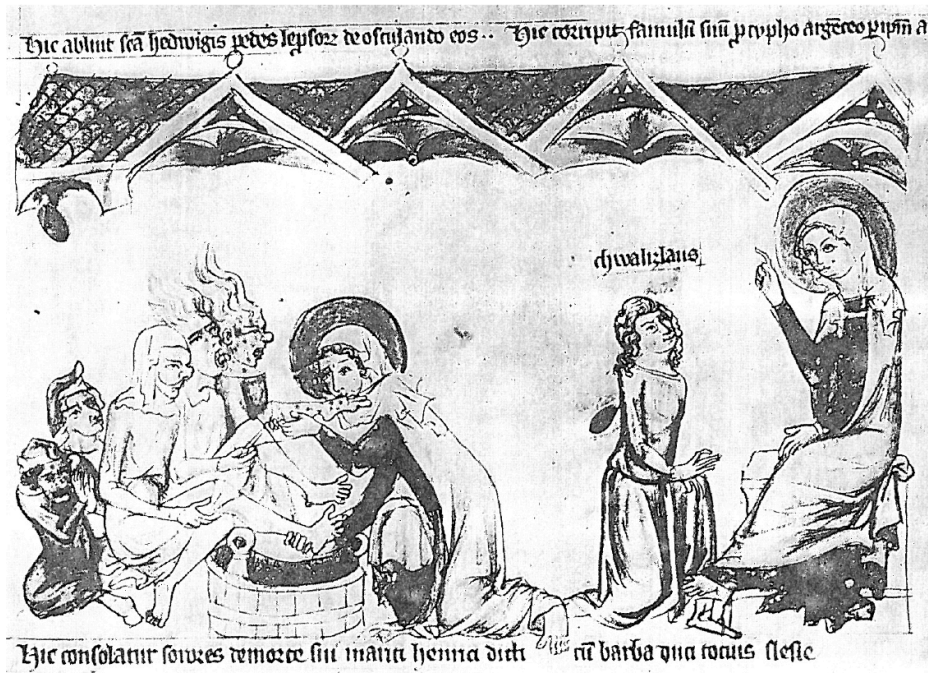 Hic abluit scā hedwigis pedes lepsorz deosculando eos·· Hic corripit famulū suū p cypho argēteo p ipm̄ a
chwalizlaus
Hic consolatur sorores demorte sui mariti henrici dicti cū barba duci tocius slesie